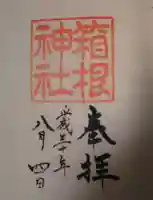 奉拝
箱根
神社
平成三十年
八月四日